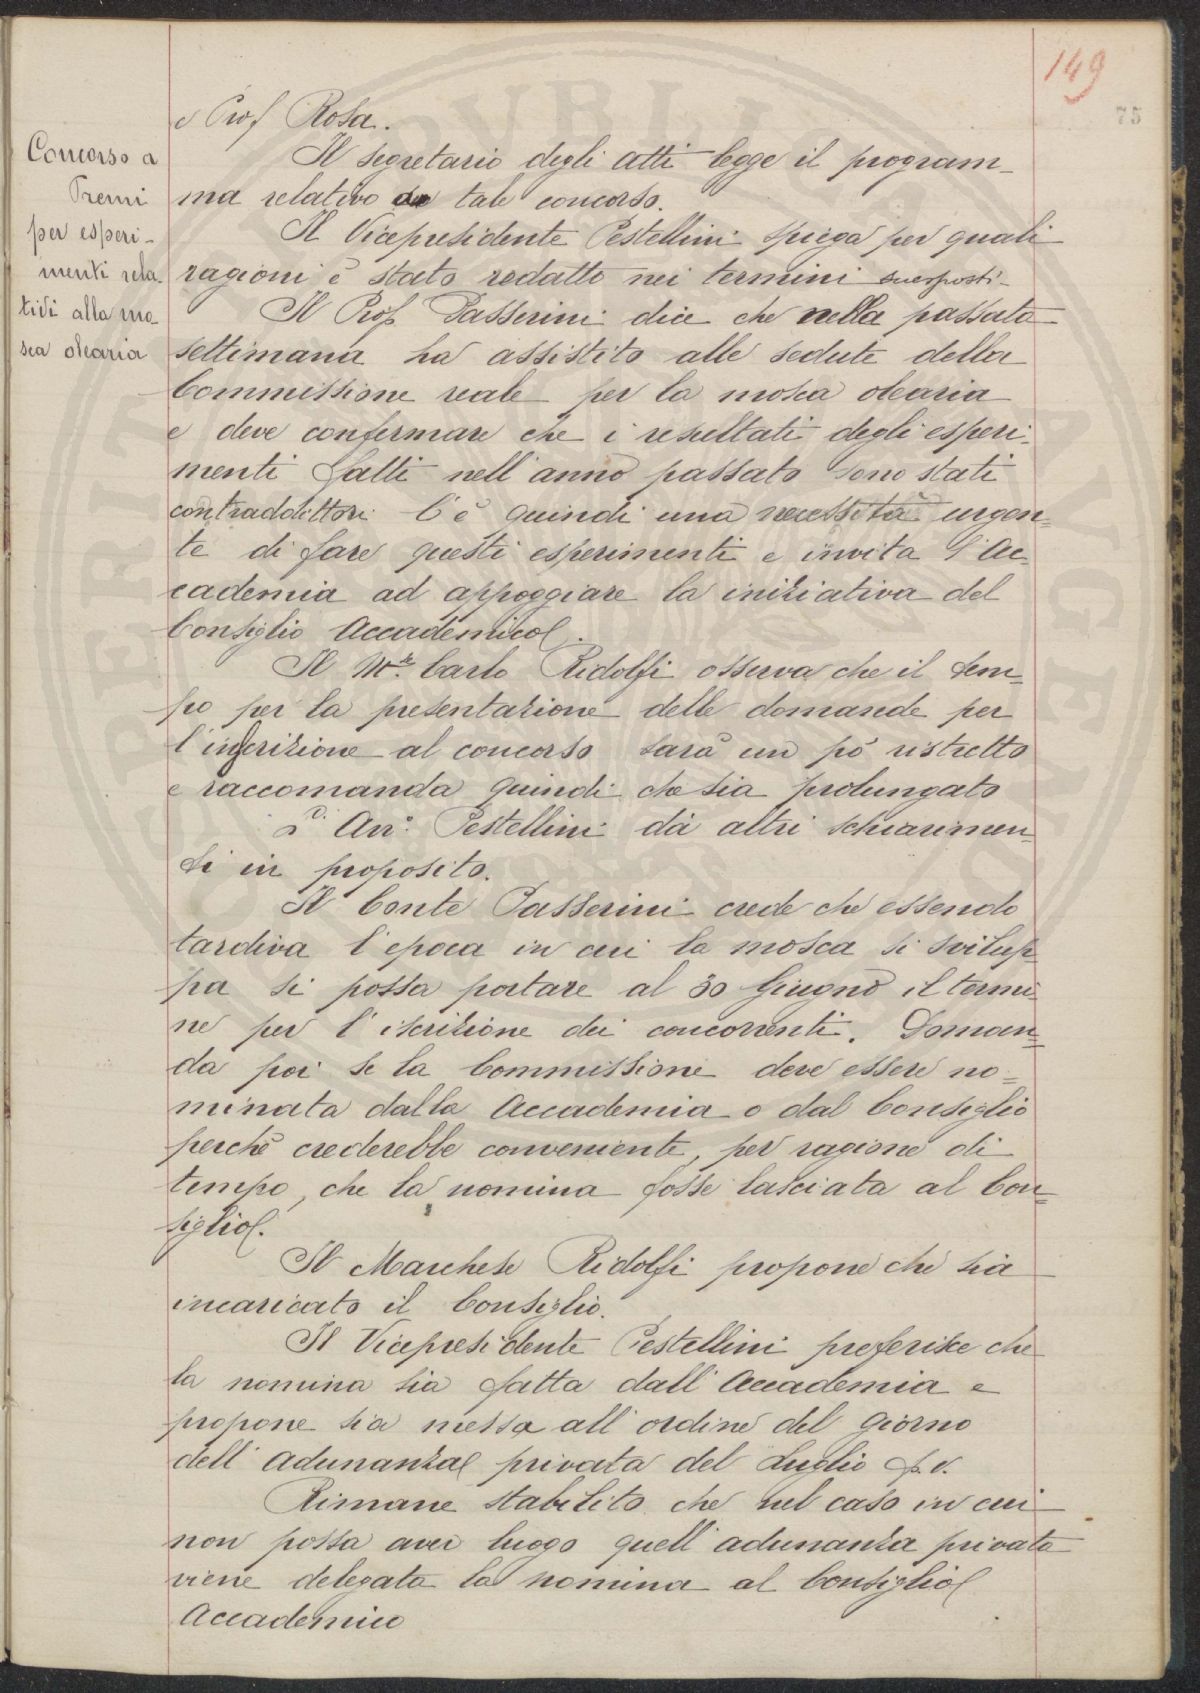 149
75
e Prof Rosa.
Concorso a
Premi
per esperi-
menti rela-
tivi alla mo-
sca olearia
Il segretario degli atti legge il program-
ma relativo a tale concorso.
Il Vicepresidente Pestellini spiega per quali
ragioni è stato redatto nei termini suesposti-
Il Prof. Passerini dice che nella passata
settimana ha assistito alle sedute della
Commissione reale per la mosca olearia
e deve confermare che i resultati degli esperi-
menti fatti nell'anno passato sono stati
contraddittori C'è quindi una necessità urgen-
te di fare questi esperimenti e invita l'Ac-
cademia ad appoggiare la iniziativa del
Consiglio Accademico.
Il M.se Carlo Ridolfi osserva che il tem-
po per la presentazione delle domande per
l'inscrizione al concorso sarà un pò ristretto
e raccomanda quindi che sia prolungato
L'Avv. Pestellini dà altri schiarimen-
ti in proposito.
Il Conte Passerini crede che essendo
tardiva l'epoca in cui la mosca si svilup-
pa si possa portare al 30 Giugno il termi-
ne per l'iscrizione dei concorrenti. Doman-
da poi se la Commissione deve essere no-
minata dalla Accademia o dal Consiglio
perchè crederebbe conveniente, per ragione di
tempo, che la nomina fosse lasciata al Con-
siglio.
Il Marchese Ridolfi propone che sia
incaricato il Consiglio.
Il Vicepresidente Pestellini preferisce che
la nomina sia fatta dall'Accademia e
propone sia messa all'ordine del giorno
dell'adunanza privata del Luglio p.v.
Rimane stabilito che nel caso in cui
non possa aver luogo quell'adunanza privata
viene delegata la nomina al Consiglio
Accademico